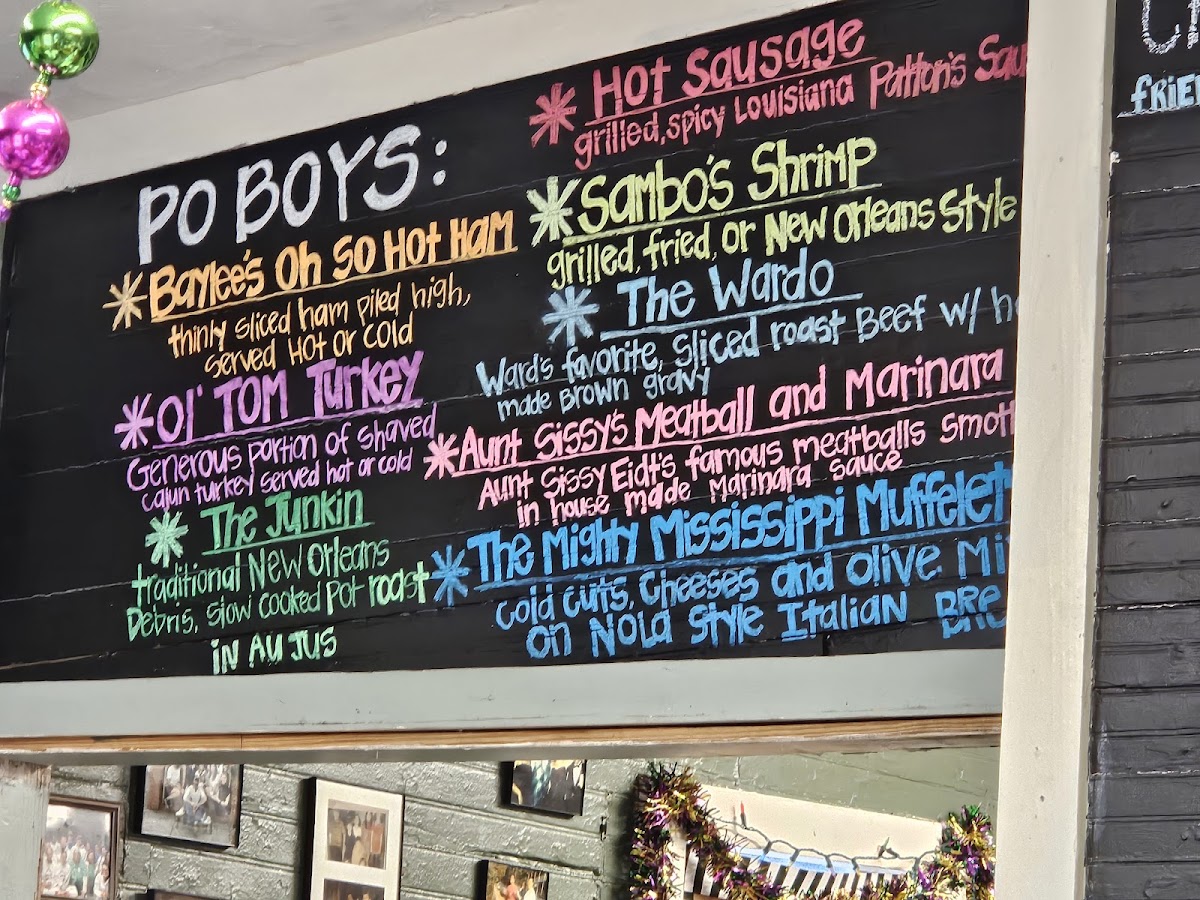 PO BOYS:
Baylee's Oh So Hot Ham
thinly sliced ham piled high,
served Hot or cold
Ol' Tom Turkey
Generous portion of shaved
cajun turkey served hot or cold
The Junkin
traditional New Orleans
Debris, slow cooked pot roast
in Au Jus
Hot Sausage
grilled, spicy Louisiana Patton's
Sambo's Shrimp
grilled, fried, or New Orleans Style
The Wardo
Ward's favorite, sliced roast Beef w/
made Brown gravy
Aunt Sissy's Meatball and Marinara
Aunt Sissy Eidt's famous meatballs
in house made Marinara sauce
The Mighty Mississippi
Cold cuts, Cheeses and olive
on Nola Style Italian